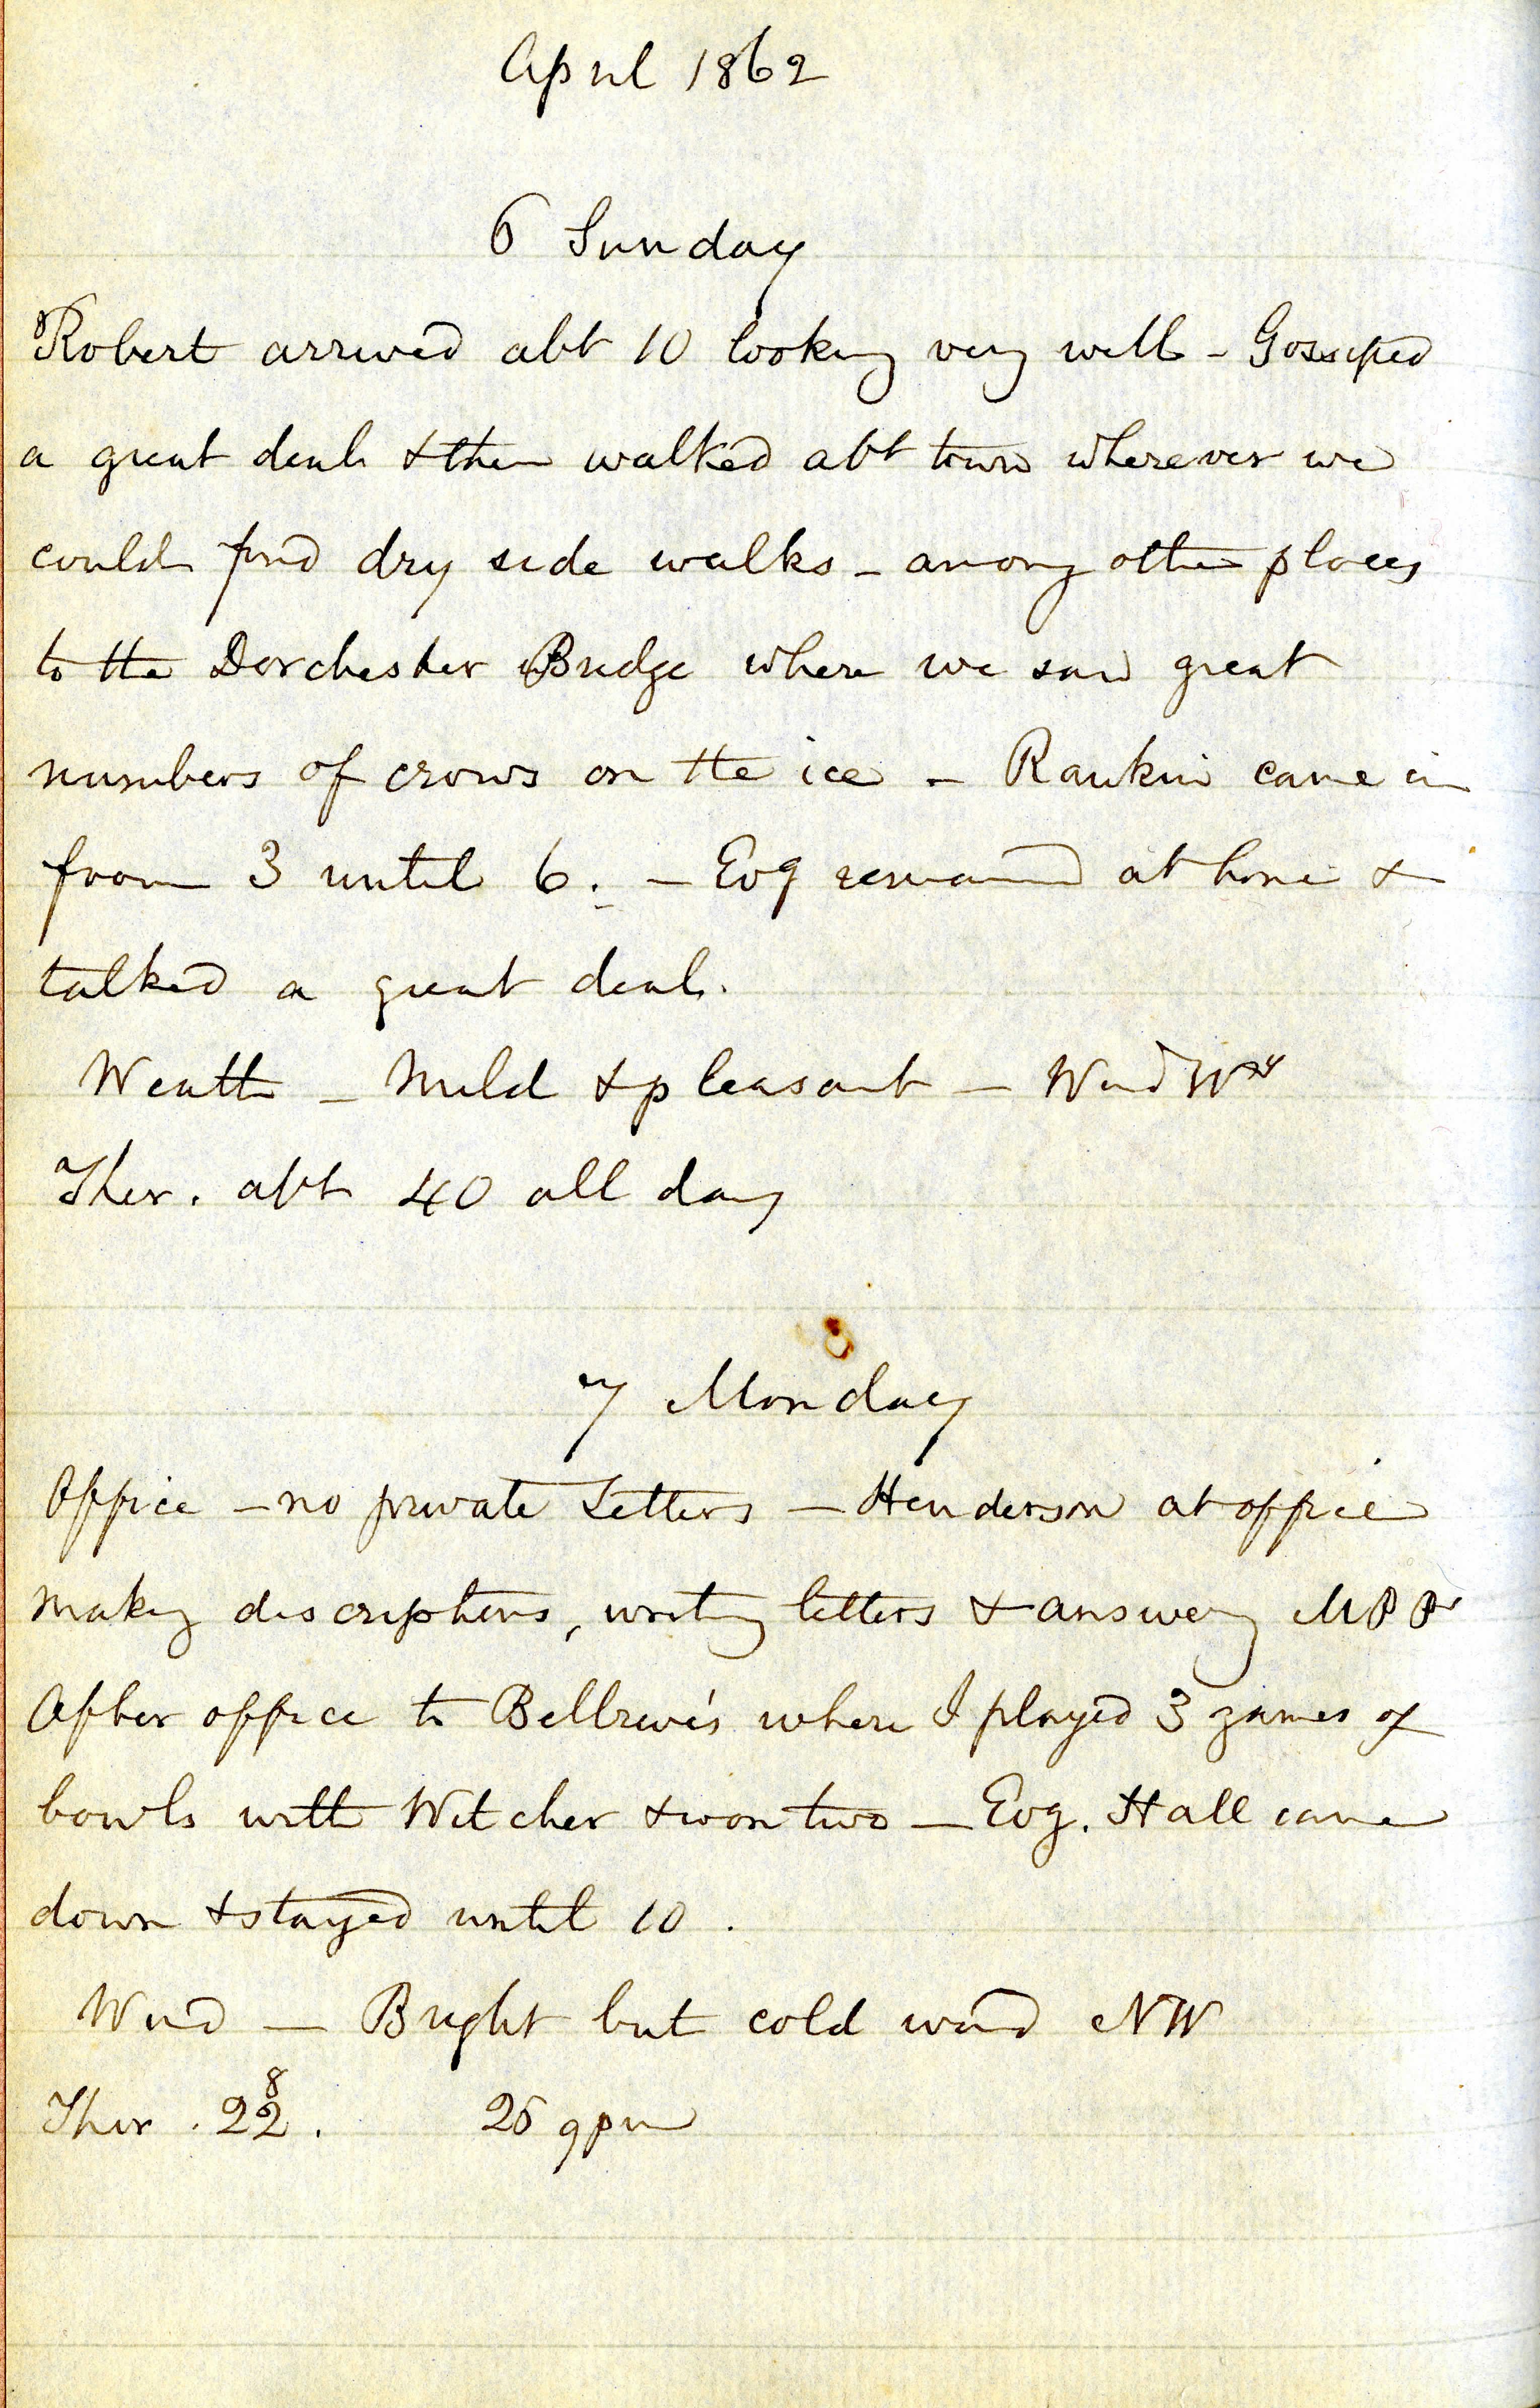 April 1862
6 Sunday
Robert arrived abt 10 looking very well - Gossiped
a great deal & then walked abt town wherever we
could find dry side walks - among other places
to the Dorchester Bridge where we saw great
numbers of crows on the ice - Rankin came in
from 3 until 6. - Evg remained at home &
talked a great deal.
Weather - Mild & pleasant - Wind
Ther. abt 40 all day
7 Monday
Office - no private Letters - Henderson at office
making descriptions, writing letters & answering MPPs
After office to where I played 3 games of
bowls with Witcher & won two - Evg. Hall came
down & stayed until 10.
Wind - Bright but cold wind NW
8
Ther. 22. 25 9 pm